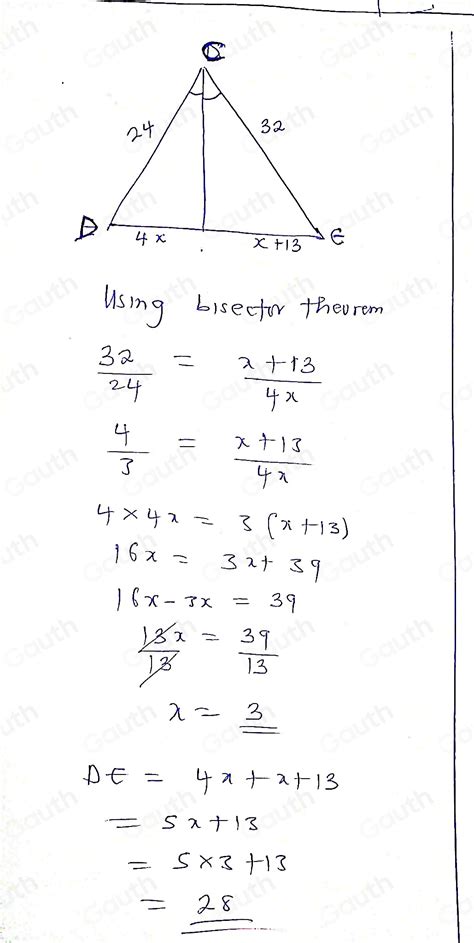 C
24 32
D 4x x+13 E
Using bisector theorem
32/24 = x+13/4x
4/3 = x+13/4x
4×4x = 3(x+13)
16x = 3x+39
16x-3x = 39
13x/13 = 39/13
x = 3
DE = 4x+x+13
= 5x+13
= 5×3+13
= 28
Gauth